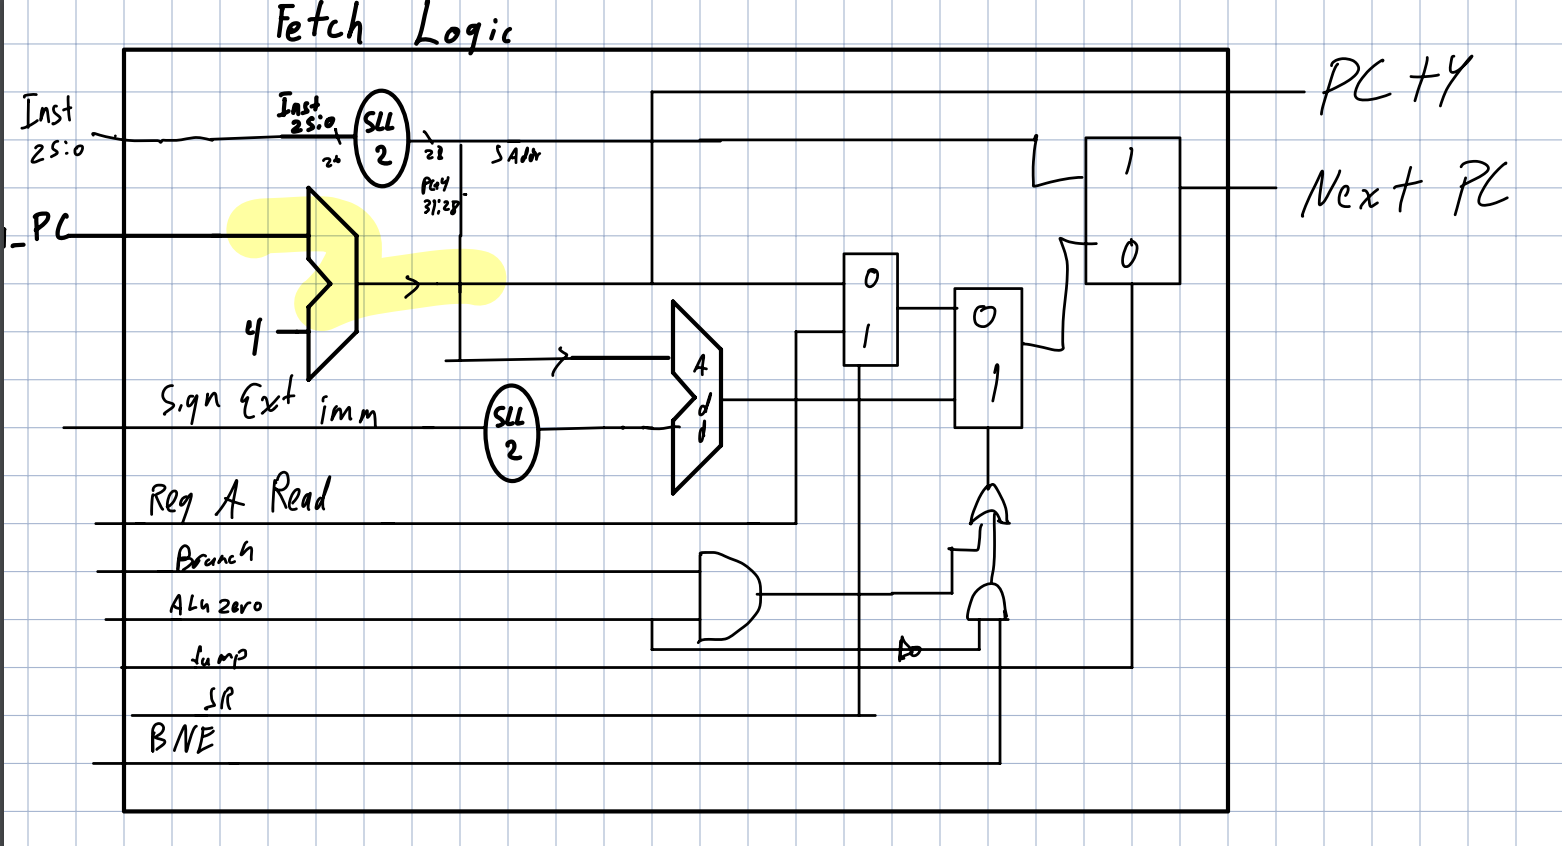 Fetch Logic
PC +4
Inst
25:0
Inst
25:0
SLL
2
28
J Addr
1
PC+4
31:28
Next PC
_PC
0
0
1
0
1
4
A
d
d
Sign Ext imm
SLL
2
Reg A Read
Branch
ALU zero
Jump
JR
BNE